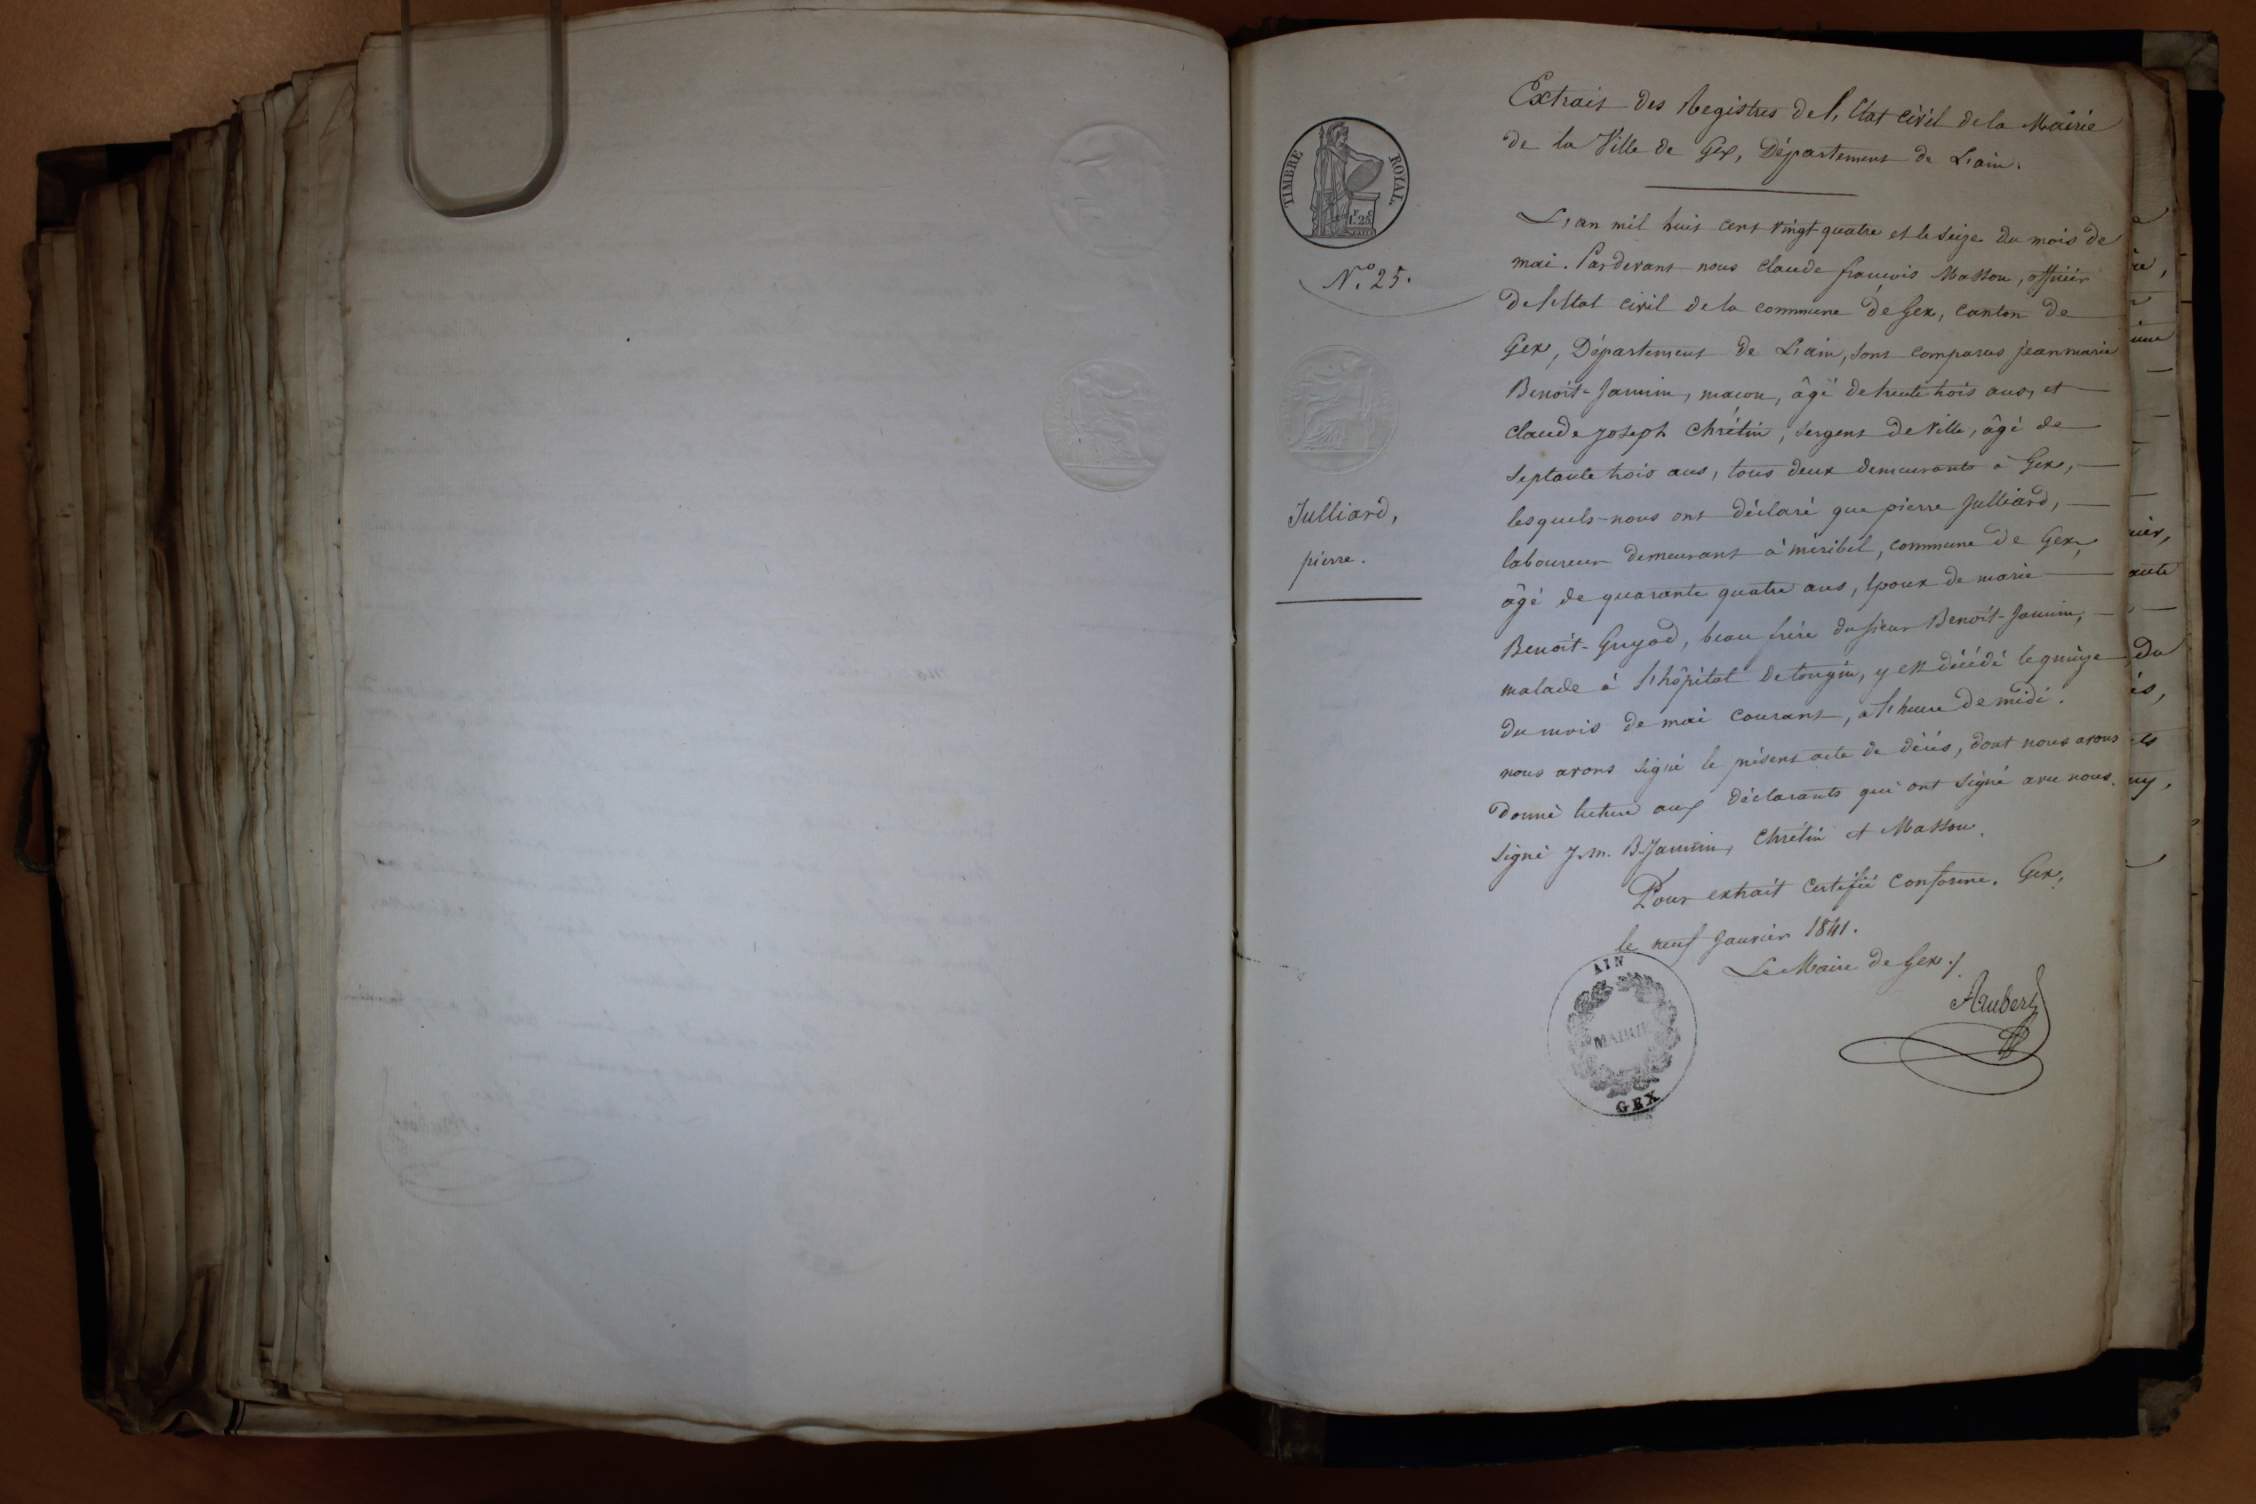 Extrait des Registres de l'Etat civil de la Mairie
de la Ville de Gex, Département de L'ain.
TIMBRE ROYAL.
1.F25.C
N.° 25.
L'an mil huit cent vingt quatre et le seize du mois de
mai. Pardevant nous claude francois Masson, officier
de l'Etat civil de la commune de Gex, canton de
Gex, Département de L'ain, sont comparus jean marie
Benoit-Janvin, macon, âgé de trente trois ans, et
claude joseph Chrétin, sergent de ville, âgé de
septante trois ans, tous deux demeurants à Gex,
Julliard,
pierre.
lesquels nous ont déclaré que pierre Julliard,
laboureur demeurant à miribel, commune de Gex,
âgé de quarante quatre ans, époux de marie
Benoit-Guyod, beau frère du sieur Benoit-Janvin,
malade à l'hôpital de tougin, y est décédé le quinze
du mois de mai courant, à l'heure de midi.
nous avons signé le présent acte de décés, dont nous avons
donné lecture aux déclarants qui ont signé avec nous.
signé J. m. B. Janvin, Chrétin et Masson.
Pour extrait certifié conforme. Gex,
le neuf Janvier 1841.
Le Maire de Gex./.
Aubert
AIN
MAIRIE
GEX